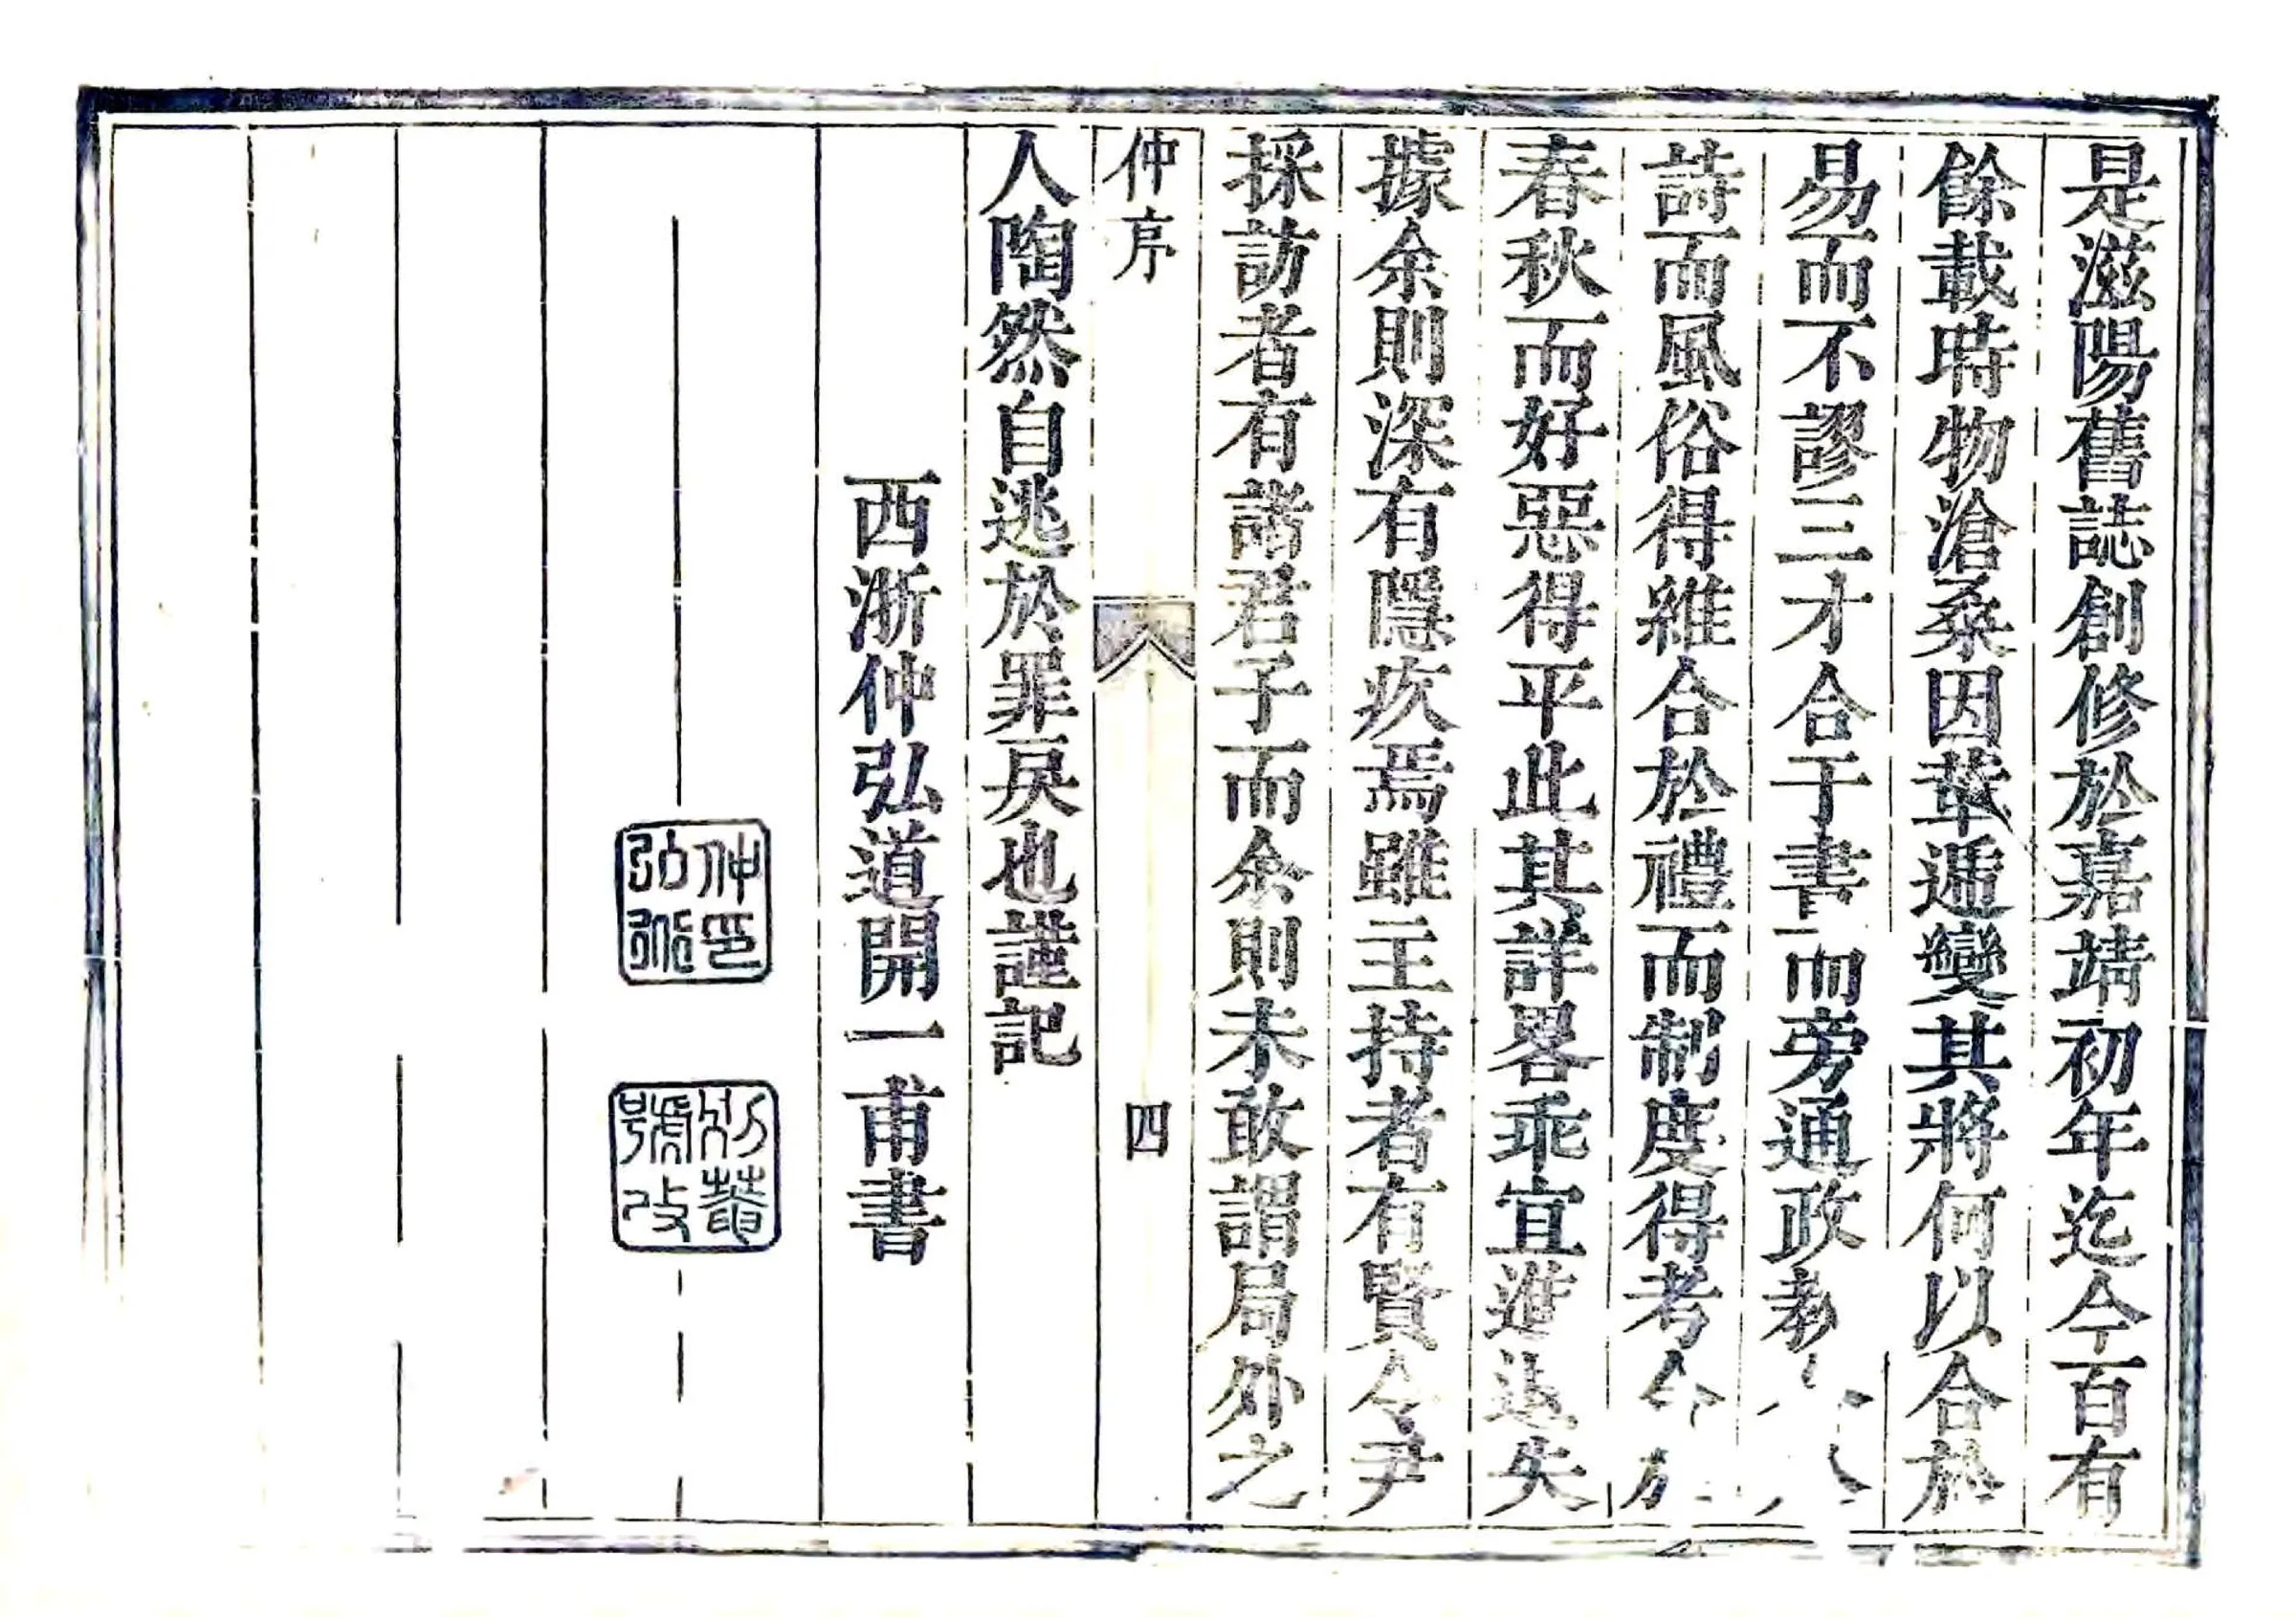 是滋陽舊誌創修於嘉靖初年迄今百有
餘載時物滄桑因革遞變其將何以合於
易而不謬三才合于書而旁通政教
詩而風俗得維合於禮而制度得考合於
春秋而好惡得平此其詳畧乖宜進退失
據余則深有隱疚焉雖主持者有賢令尹
採訪者有諸君子而余則未敢謂局外之
仲序
四
人陶然自逃於罪戾也謹記
西浙仲弘道開一甫書
仲弘道印
別菴號改